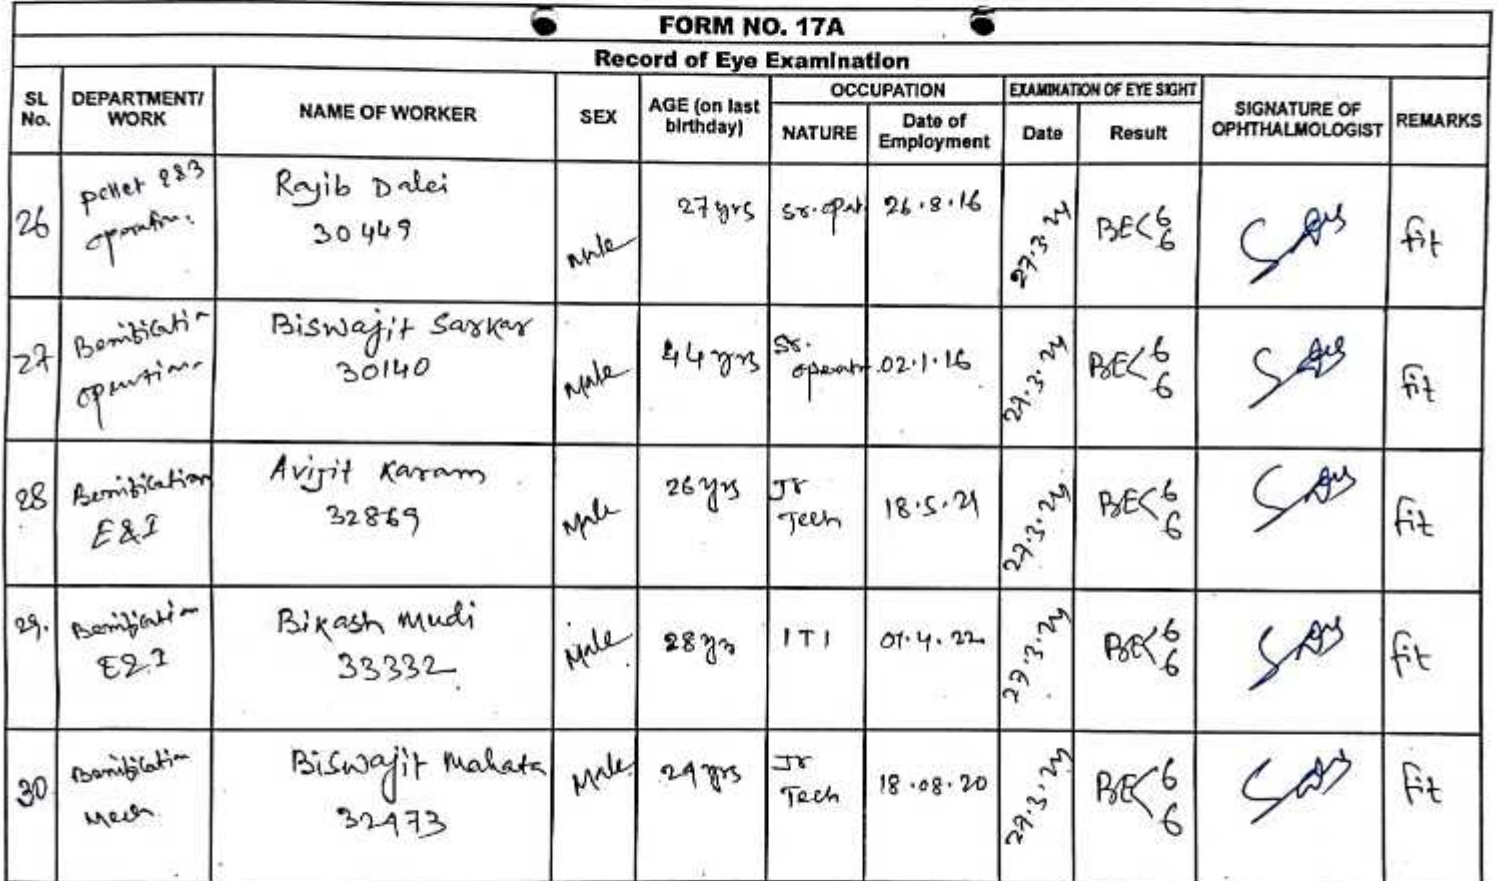 FORM NO. 17A
Record of Eye Examination
SL No. DEPARTMENT/ WORK NAME OF WORKER SEX AGE (on last birthday) OCCUPATION EXAMINATION OF EYE SIGHT SIGNATURE OF OPHTHALMOLOGIST REMARKS
NATURE Date of Employment Date Result
26 pellet 2&3 operation. Rajib Dalei 30449 Male 27 yrs Sr. opat 26.8.16 27.3.24 BE< 6 6 fit
27 Benification operation Biswajit Sarkar 30140 Male 44 yrs Sr. operator 02.1.16 27.3.24 BE< 6 6 fit
28 Benification E&I Avijit Karam 32869 Male 26 yrs Jr Tech 18.5.21 27.3.24 BE< 6 6 fit
29. Benification E&I Bikash Mudi 33332 Male 28 yrs ITI 01.4.22 27.3.24 BE< 6 6 fit
30 Benification Mech. Biswajit Mahata 32473 Male 24 yrs Jr Tech 18.08.20 27.3.24 BE< 6 6 fit